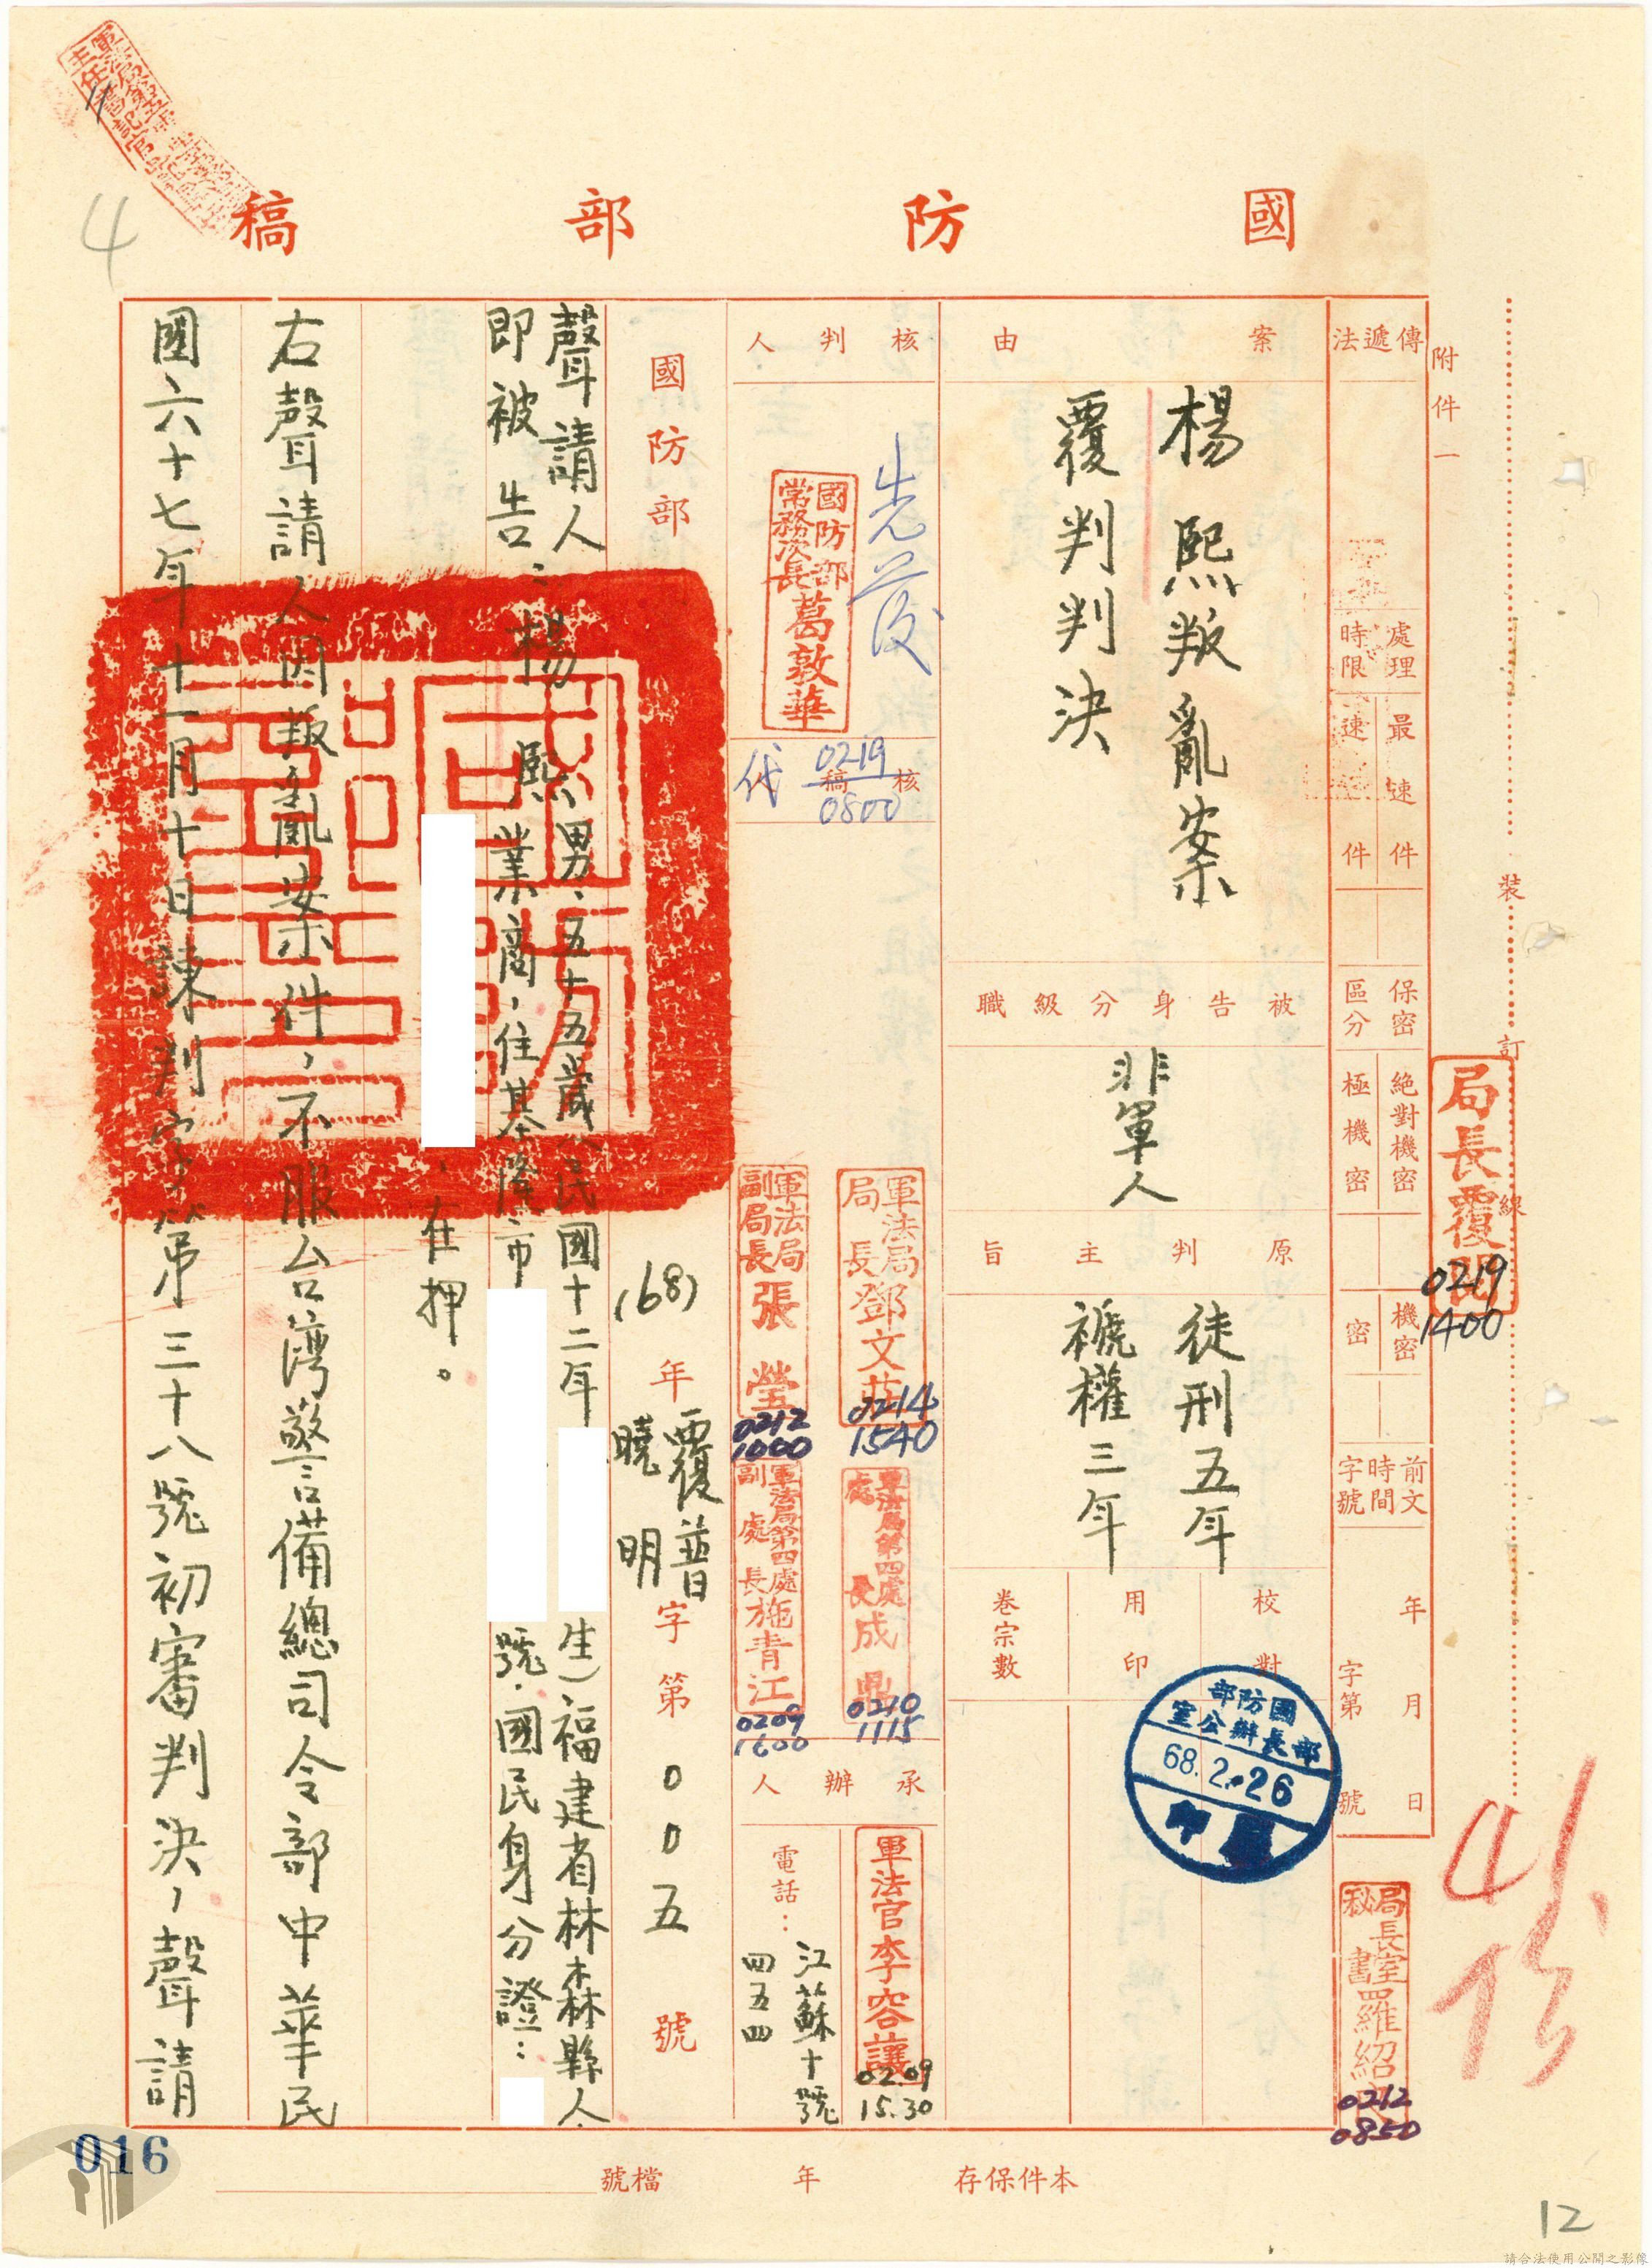 國防部稿
附件一
裝訂線
傳遞法
處理時限
最速件
速件
保密區分
絕對機密
極機密
機密
密
前文時間字號
年月日
字第號
局長覆閱
0219
1400
局長室秘書羅紹
0212
0850
案由
楊熙叛亂案
覆判判決
被告身分級職
非軍人
原判主旨
徒刑五年
褫權三年
校對
用印
卷宗數
國防部
部長辦公室
68.2.26
核判人
先發
國防部常務次長葛敦華
代
0219
0800
核稿人
軍法局局長鄧文莊
0214
1540
軍法局副局長張瑩
0212
1000
軍法局第四處處長成鼎
0210
1115
軍法局第四處副處長施青江
0209
1600
承辦人
軍法官李容讓
02.09
15.30
電話：
江蘇十號
四五四
國防部
(68)年覆普曉明字第00五號
聲請人
即被告：楊熙男、五十五歲(民國十二年
生)福建省林森縣人、
業商，住基隆市
號．國民身分證：
．在押。
右聲請人因叛亂案件，不服台灣警備總司令部中華民
國六十七年十一月十日諫判字第三十八號初審判決，聲請
本件保存
年
檔號
016
4
12
請合法使用公開之影像